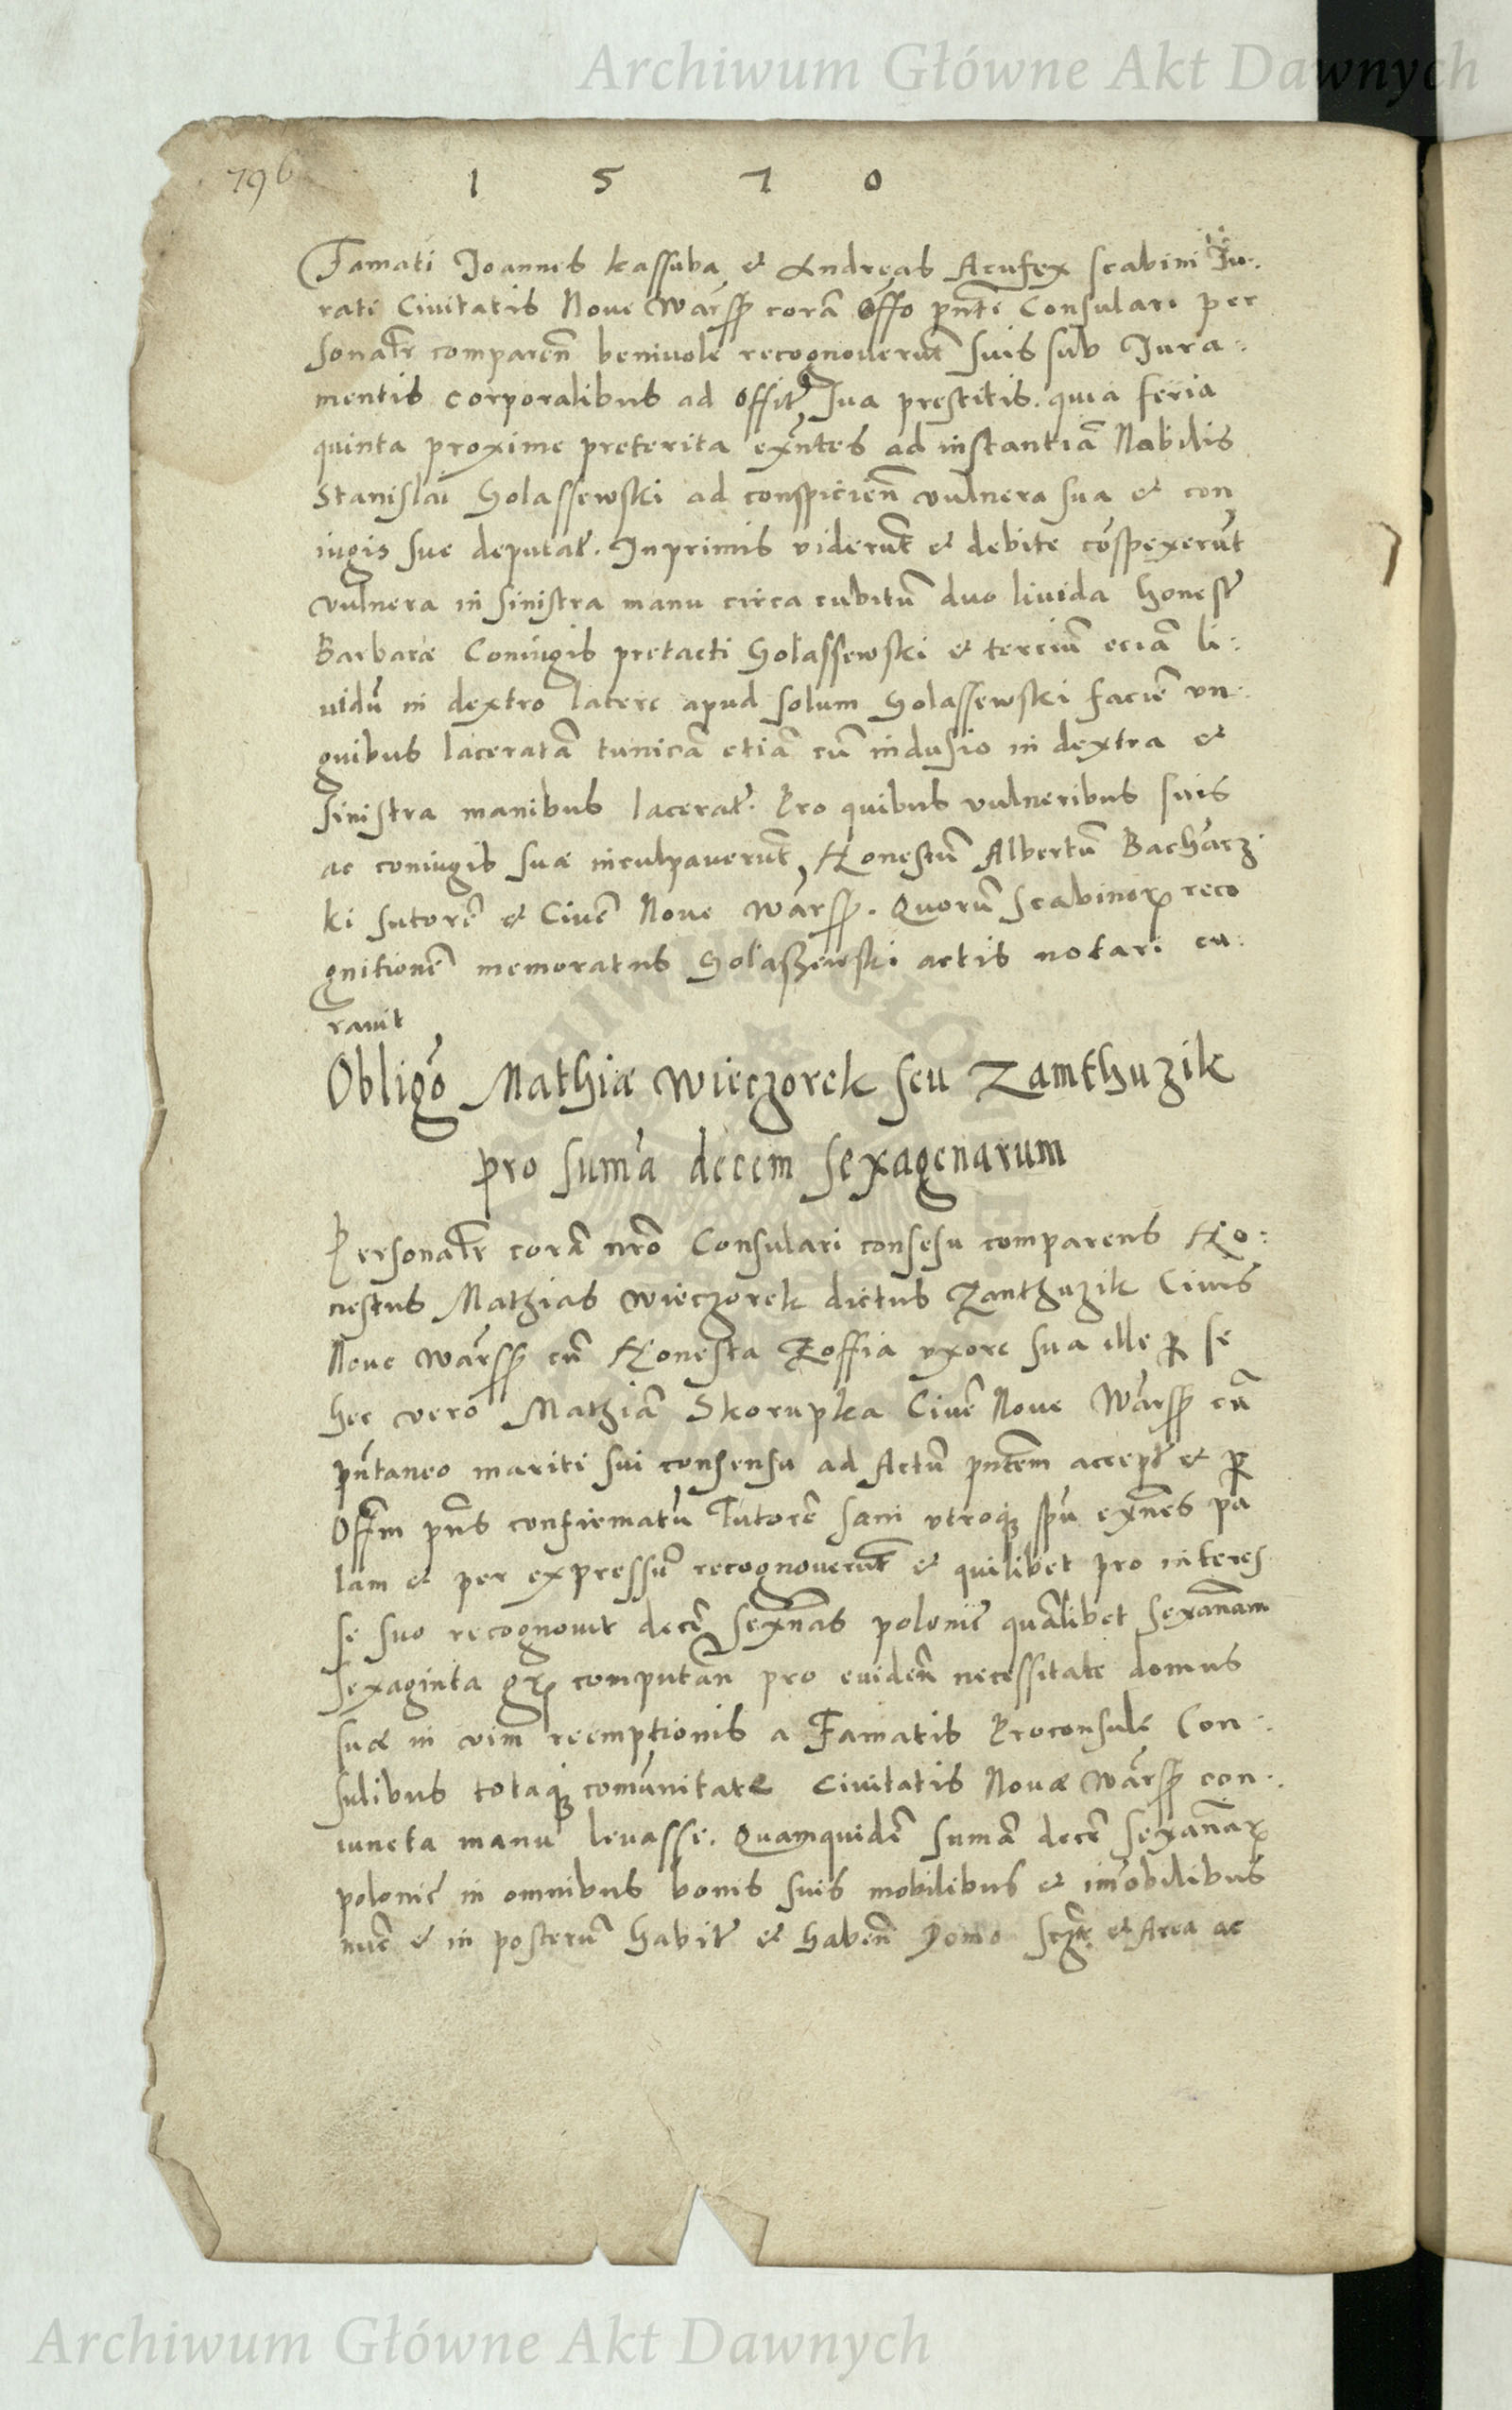 Archiwum Główne Akt Dawnych
796
1 5 7 0
Famati Joannes kassuba et Andreas Acufex scabini Ju:
rati Civitatis Noue Warsß corã offo pñte Consulari per
sonalr comparen̄ beniuole recognouerut suis sub Jura:
mentis corporalibus ad offit Jua prestitis. quia feria
quinta proxime preterita exñtes ad instantiã Nobilis
Stanislai Golassewski ad conspicien̄ vulnera sua et con
iugis sue deputat. Inprimis viderut et debite cospexerut
vulnera in sinistra manu circa cubitũ duo liuida honest
Barbaræ Coniugis pretacti Gołassewski et terciũ eciã li:
uidũ in dextro latere apud solum Golassewski faciẽ vn:
guibus laceratã tunicã etiã cũ indusio in dextra et
sinistra manibus lacerat. Pro quibus vulneribus suis
ac coniugis suæ inculpauerut Honestũ Albertũ Bachacz
ki sutorẽ et Ciuẽ Noue Warsß. Quorũ scabinor reco
gnitionẽ memoratus Golaszewski actis notari cu:
rauit
Obligo Mathiæ Wieczorek seu Zamthuzik
pro suma decem sexagenarum
Personalr corã nro Consulari consesu comparens Ho:
nestus Mathias Wieczorek dictus Zanthuzik Ciuis
Noue Warsß cũ Honesta Zoffia vxore sua ille p se
hec vero Mathiã Skorupka Ciuẽ Noue Warsß cũ
pñtaneo mariti sui consensu ad Actũ pñtem accept et p
Offm pñs confirmatũ Tutorẽ sani vtroqȝ spũ exñes pa
lam et per expressũ recognouerut et quilibet pro interes
se suo recognouit decẽ sexñas polonic quãlibet sexanam
sexaginta gr computan̄ pro euiden̄ necessitate domus
suæ in vim reemptionis a Famatis Proconsule Con:
sulibus totaqȝ comunitate Ciuitatis Nouæ Warsß con:
iuncta manu leuasse. Quamquidẽ sumã decẽ sexanar
polonic in omnibus bonis suis mobilibus et imobilibus
nũc et in posterũ habit et haben̄ Domo et Area ac
Archiwum Główne Akt Dawnych